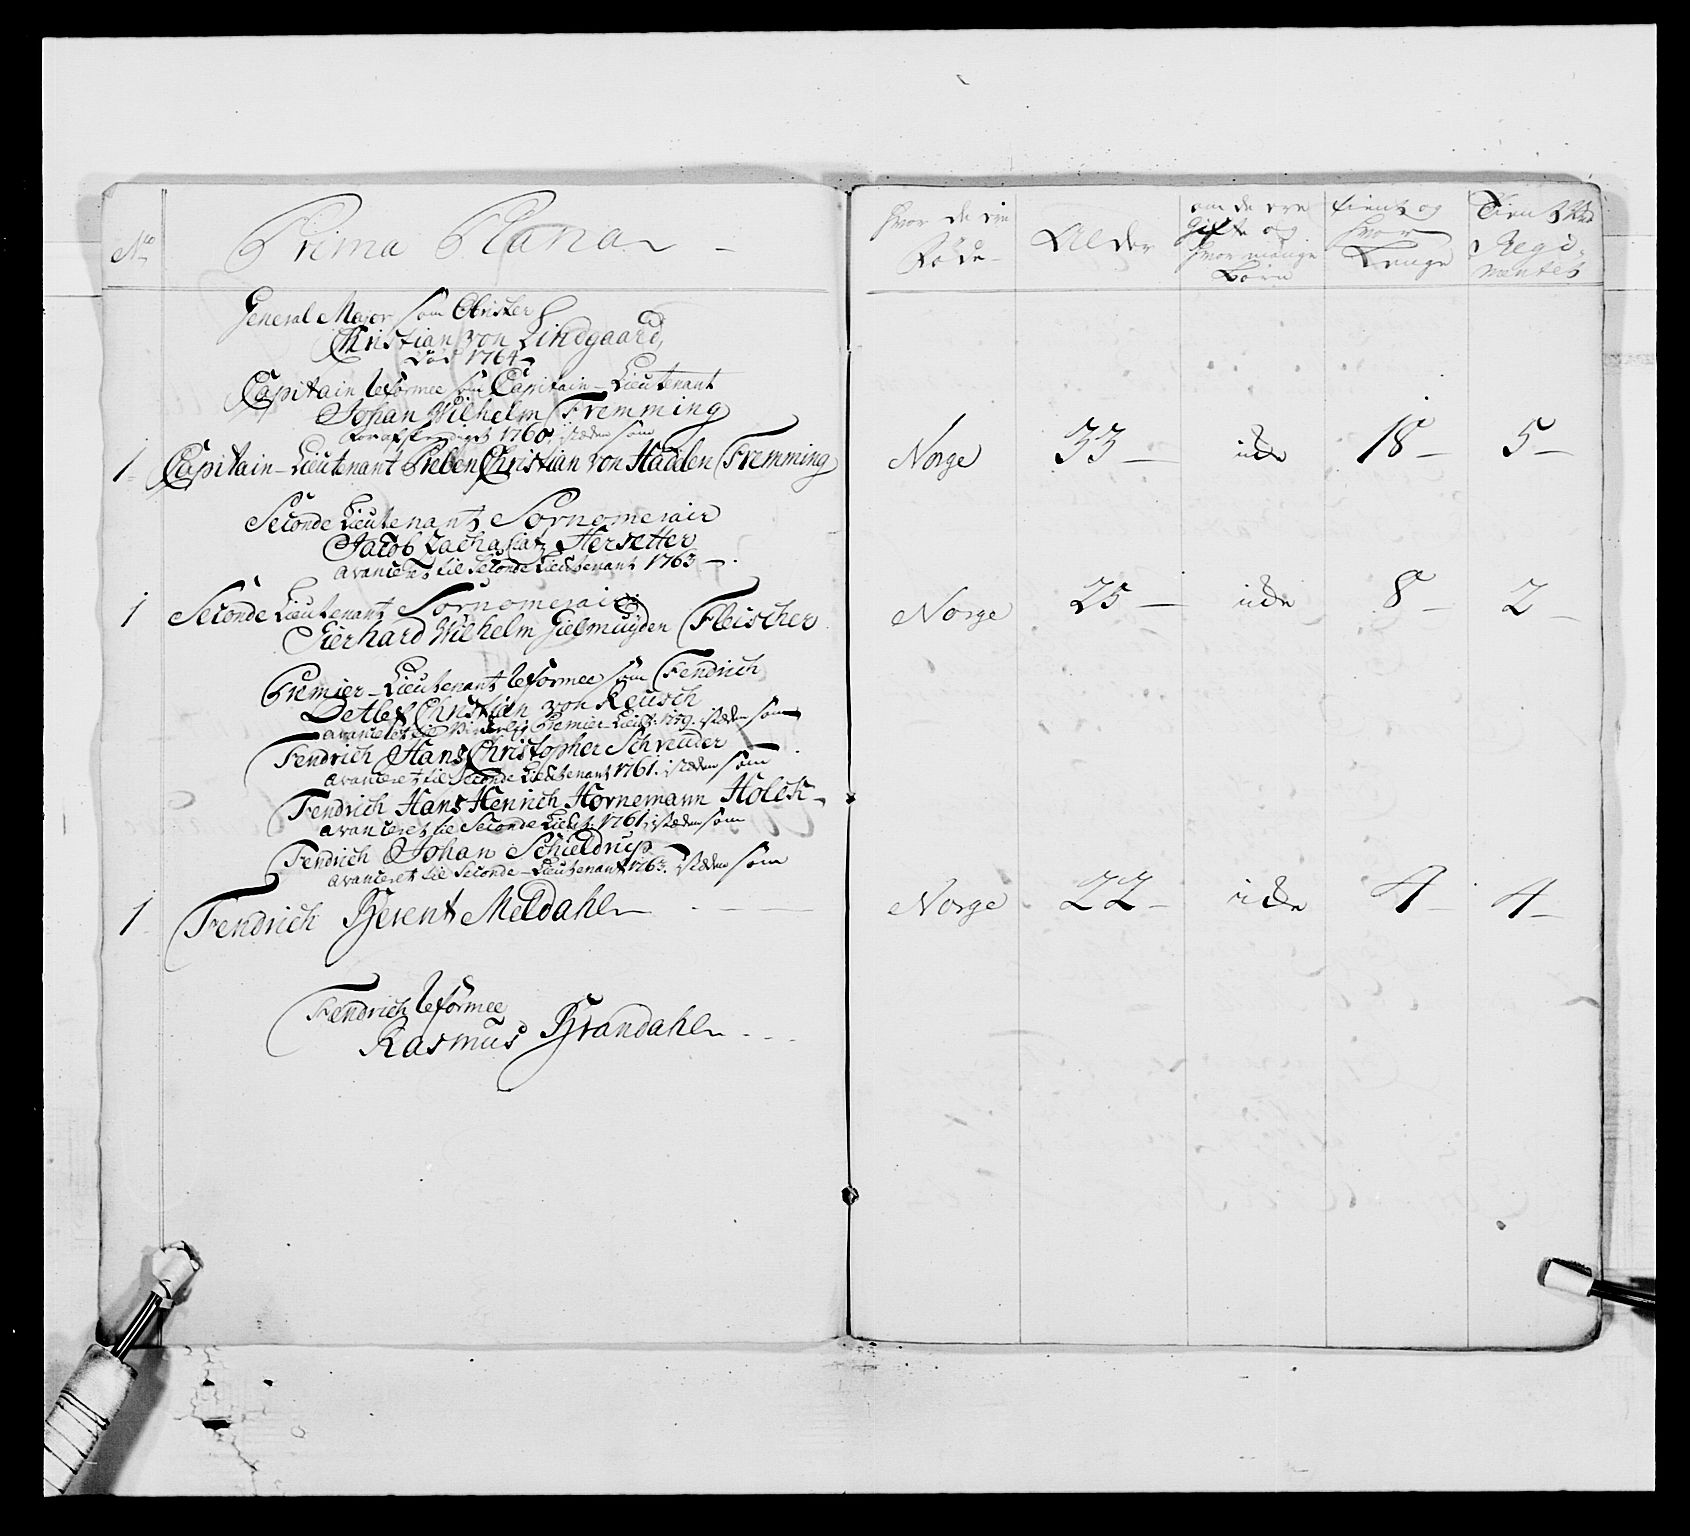 No
Prima Plana
General Major som Obrister
Christian von Lindgaard,
død 1764
Capitain Reformee som Capitain-Lieutenant
Johan Wilhelm Fremming
for afskeediget 1760, isteden som
1 Capitain-Lieutenant Preben Christian von Hadelen Fremming
Seconde Lieutenants Sornomerair
Jacob Zachariat Hersetter
avanceret til Seconde Lieutenant 1763
1 Seconde Lieutenant Sornomerair
Gierhard Wilhelm Gielmuyden Fleischer
Premier-Lieutenant Reformee som Fendrich
Detlef Christian von Reusch
avanceret til Premier-Lieut: isteden som
Fendrich Hans Christopher Schreuder
avanceret til Seconde Lieutenant 1761. isteden som
Fendrich Hans Henrich Hornemann Holck
avanceret til Seconde Lieut: 1761, isteden som
Fendrich Johan Schieldrup
avanceret til Seconde-Lieutenant 1763. isteden som
1 Fendrich Berent Meldahl
Fendrich Reformee
Rasmus Brandahl
hvor de ere
Føde
Alder
om de ere
Gifte og
hvor mange
Børn
tient og
hvor
Længe
Tient ved
Regi-
mentet
Norge 33 icke 18 5
Norge 25 icke 8 2
Norge 22 icke 4 4